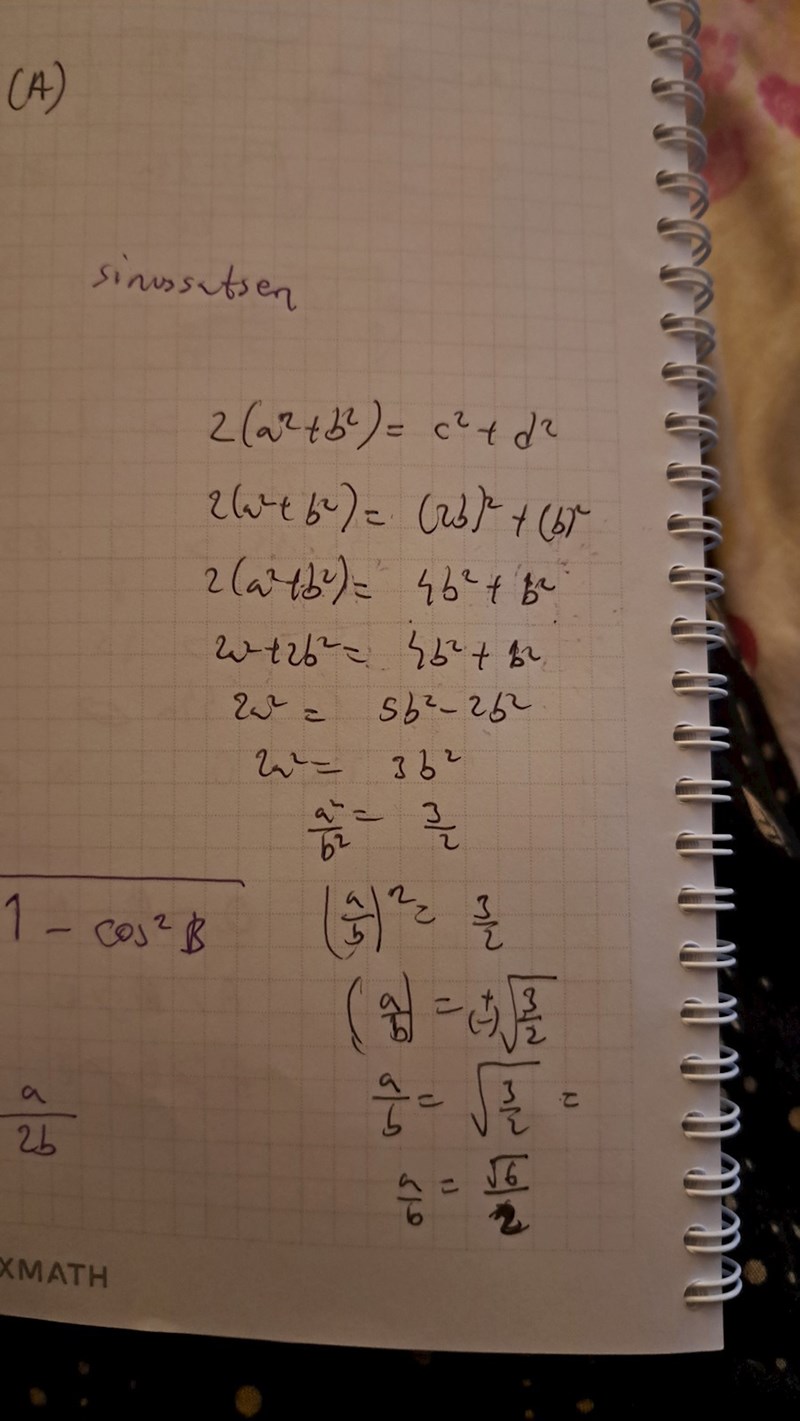 (A)
sinussatsen
2(a²+b²) = c² + d²
2(a²+b²) = (2b)² + (b)²
2(a²+b²) = 4b² + b²
2a²+2b² = 4b² + b²
2a² = 5b² - 2b²
2a² = 3b²
a²/b² = 3/2
1 - cos² B
(a/b)² = 3/2
(a/b) = +(-) √(3/2)
a/2b
a/b = √(3/2) =
a/b = √6/2
XMATH